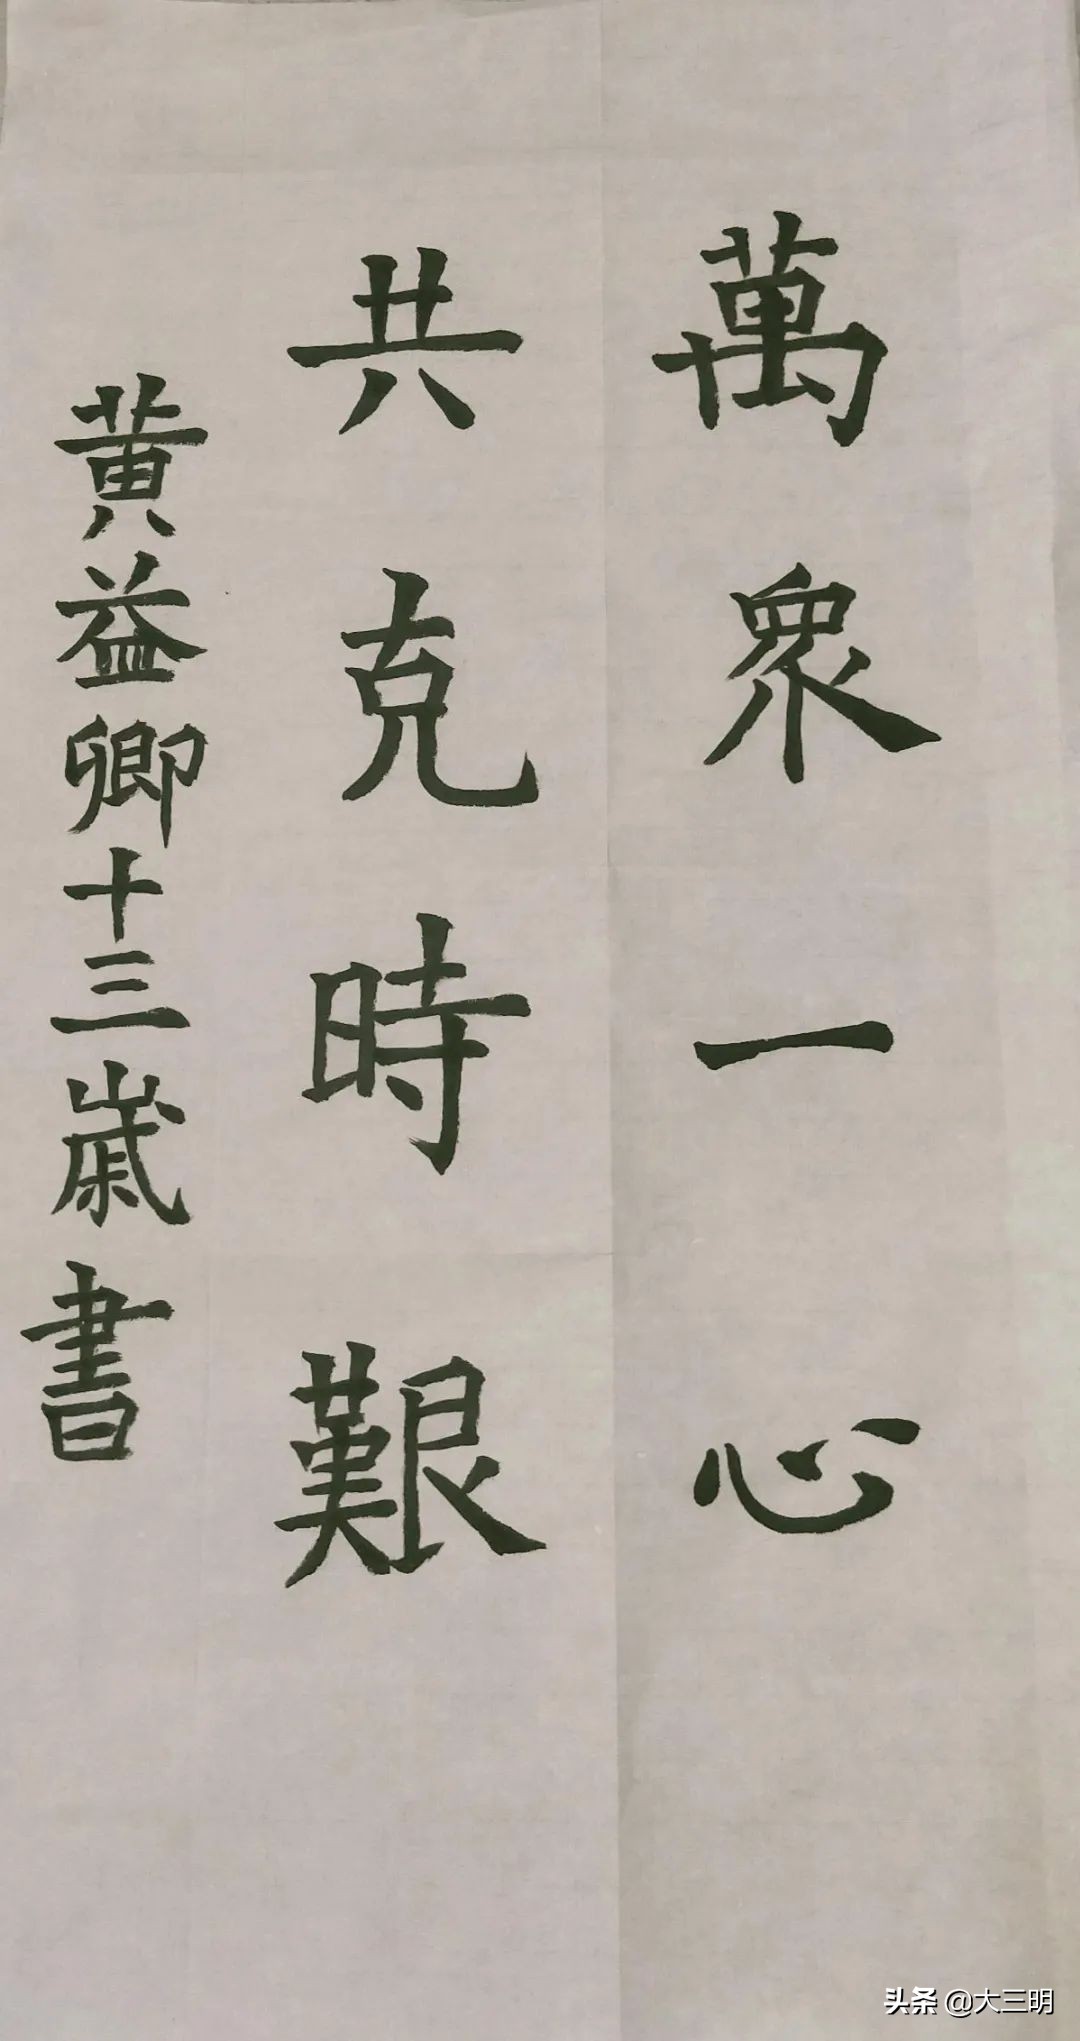 萬眾一心
共克時艱
黄益卿十三歲書
头条 @大三明